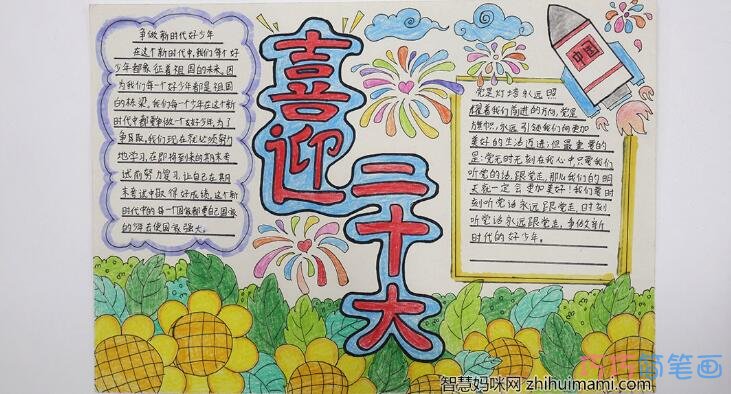 喜迎二十大
争做新时代好少年
在这个新时代中,我们每个好
少年都象征着祖国的未来,因
为我们每一个好少年都是祖国
的栋梁,我们每一个少年在这个新
时代中都要争做一个好少年,为了
争取,我们现在就必须努力
地学习,在即将到来的期末考
试前努力复习,让自己在期
末考试中取得好成绩,这个新
时代中的每一个国家都要
的少年去使国家强大。
中国
党是灯塔永远照
耀着我们前进的方向,党是
旗帜,永远引领我们向更加
美好的生活迈进;但最重要的
是:党无时无刻在我心中只要我们
听党的话,跟党走,那么我们的明
天就一定会更加美好!我们要时
刻听党话永远跟党走,时刻
听党话永远跟党走,争做新
时代的好少年。
简笔画
智慧妈咪网 zhihuimami.com